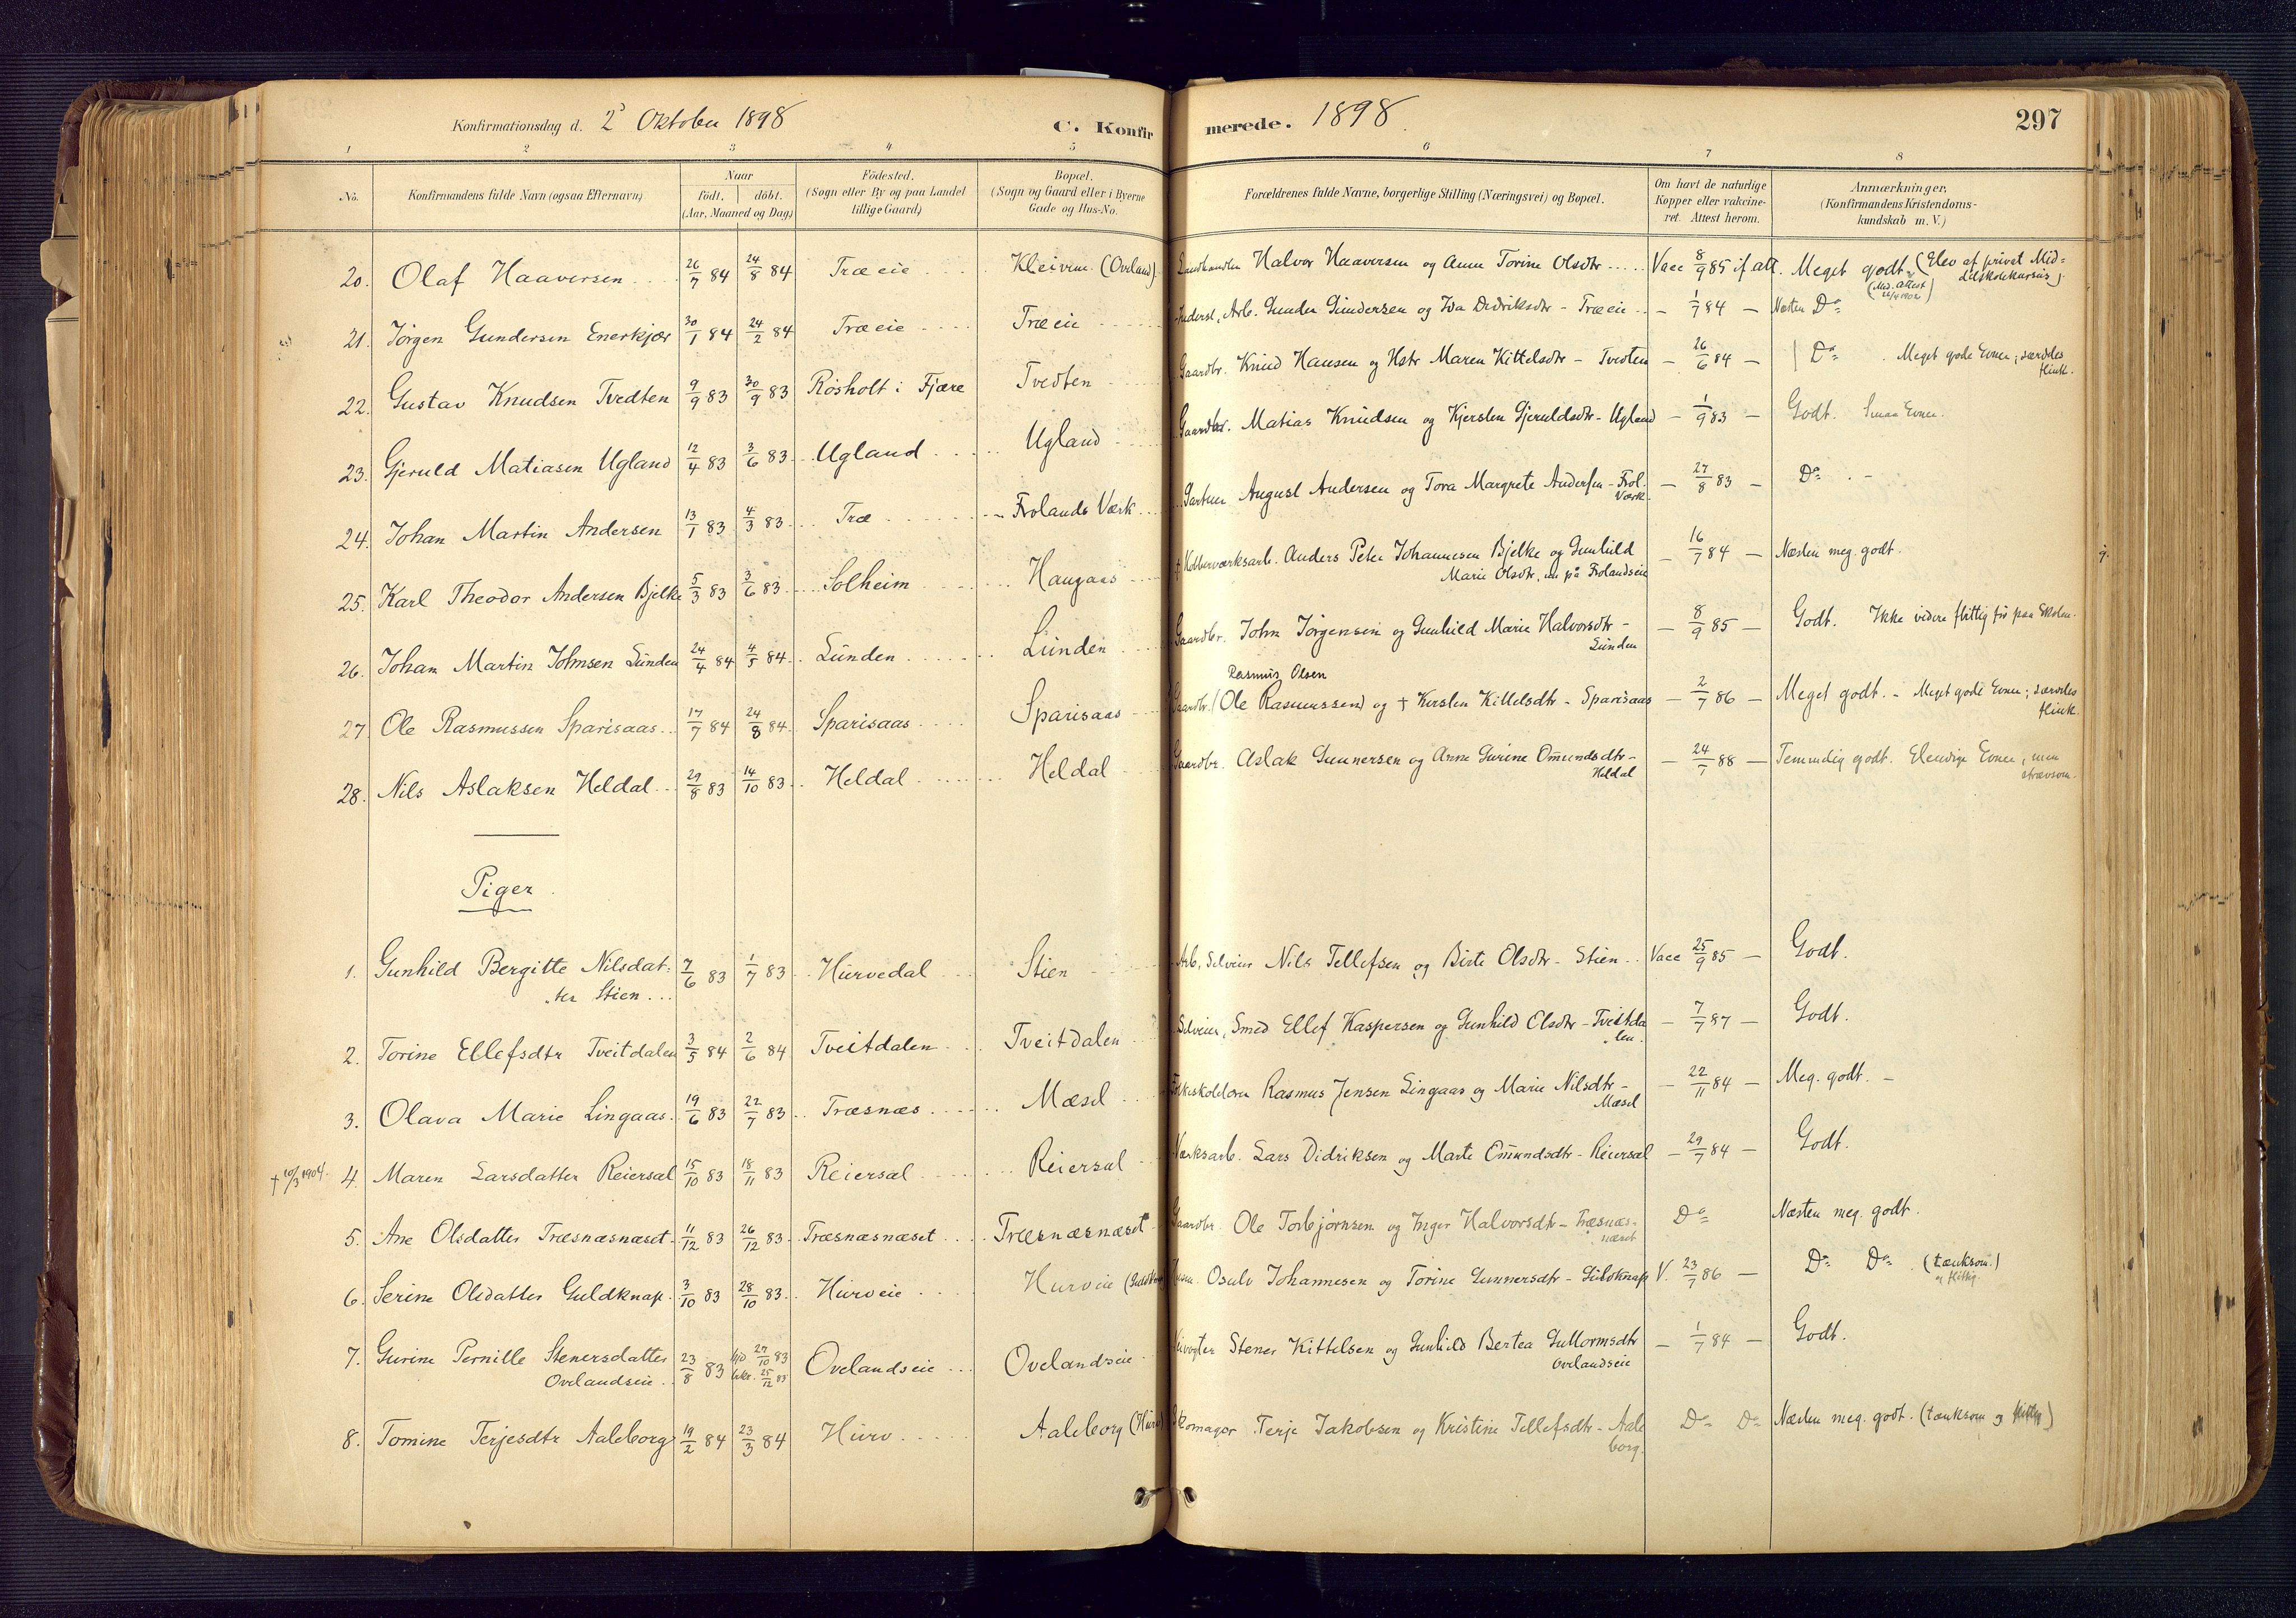 Konfirmationsdag d. 2 Oktober 1898 C. Konfir merede. 1898. 297
1 2 3 4 5 6 7 8
No. Konfirmandens fulde Navn (ogsaa Efternavn) Naar födt. döbt. (Aar, Maaned og Dag) Födested. (Sogn eller By og paa Landet tillige Gaard) Bopæl. (Sogn og Gaard eller i Byerne Gade og Hus-No. Forældrenes fulde Navne, borgerlige Stilling (Næringsvei) og Bopæl. Om havt de naturlige Kopper eller vakcineret. Attest herom. Anmærkninger. (Konfirmandens Kristendomskundskab m. V.)
20. Olaf Haaversen 26/7 84 24/8 84 Træeie Kleivene (Oveland) Landhandler Halvor Haaversen og Anne Torine Olsdtr Vacc 8/9 85 if. att. Meget godt (Elev af privat Mid=
delskolekursus)
21. Jörgen Gundersen Enerkjær 30/1 84 24/2 84 Træeie Træeie Inderst, Arb. Gunder Gundersen og Ida Didriksdtr - Træeie - 1/7 84 - Næsten Do
22. Gustav Knudsen Tvedten 9/9 83 30/9 83 Rösholt i Fjære Tvedten Gaardbr. Knud Hansen og Hstr Maren Kittelsdtr - Tvedten - 26/6 84 - Do. Meget gode Evner; særdeles
flink.
23. Gjeruld Matiasen Ugland 12/4 83 3/6 83 Ugland Ugland Gaardbr. Matias Knudsen og Kjersten Gjeruldsdtr - Ugland - 1/9 83 - Godt. Smaa Evner.
24. Johan Martin Andersen 13/1 83 4/3 83 Træ Frolands Værk Gartner August Andersen og Tora Margrete Andersen - Frol.
Værk - 27/8 83 - Do. -
25. Karl Theodor Andersen Bjelke 5/3 83 3/6 83 Solheim Haugaas † Kobberværksarb. Anders Peter Johannesen Bjelke og Gunhild
Marie Olsdtr, nu på Frolandseie - 16/7 84 - Næsten meg. godt.
26. Johan Martin Johnsen Lunden 24/4 84 4/5 84 Lunden Lunden Gaardbr. John Jörgensen og Gunhild Marie Halvorsdtr -
Lunden - 8/9 85 - Godt. Ikke videre flittig för paa Skolen.
Rasmus Olsen
27. Ole Rasmussen Sparisaas 17/7 84 24/8 84 Sparisaas Sparisaas Gaardbr. (Ole Rasmussen) og † Kirsten Kittelsdtr - Sparisaas - 2/7 86 - Meget godt. - Meget gode Evner; særdeles
flink.
28. Nils Aslaksen Heldal 29/8 83 14/10 83 Heldal Heldal Gaardbr. Aslak Gunnersen og Anne Gurine Omundsdtr -
Heldal - 24/7 88 - Temmelig godt. Elendige Evner, men
strævsom.
Piger
1. Gunhild Bergitte Nilsdat=
ter Stien 7/6 83 1/7 83 Hurvedal Stien Arb., Selveier Nils Tellefsen og Birte Olsdtr - Stien Vacc 25/9 85 - Godt.
2. Torine Ellefsdtr Tveitdalen 3/5 84 2/6 84 Tveitdalen Tveitdalen Selveier, Smed Ellef Kaspersen og Gunhild Olsdtr - Tveitda
len. - 7/7 87 - Godt.
3. Olava Marie Lingaas 19/6 83 22/7 83 Træsnæs Mæsel Folkeskolelærer Rasmus Jensen Lingaas og Marie Nilsdtr -
Mæsel - 22/11 84 - Meg. godt. -
† 10/3 1904. 4. Maren Larsdatter Reiersal 15/10 83 18/11 83 Reiersal Reiersal Værksarb. Lars Didriksen og Marte Omundsdtr - Reiersal - 29/7 84 - Godt.
5. Ane Olsdatter Træsnæsnæset 11/12 83 26/12 83 Træsnæsnæset Træsnæsnæset Gaardbr. Ole Torbjörnsen og Inger Halvorsdtr - Træsnæs-
næset Do Næsten meg. godt.
6. Serine Olsdatter Guldknap 3/10 83 28/10 83 Hurveie Hurveie (Guldknap) Osulv Johannesen og Torine Gunnersdtr - Guldknap V. 23/7 86 - Do Do (tænksom)
og flittig.
7. Gurine Pernille Stenersdatter
Ovelandseie 23/8 83 hjd 27/10 83 bekr. 25/12 83 Ovelandseie Ovelandseie Stener Kittelsen og Gunhild Bertea Guttormsdtr
Ovelandseie - 1/7 84 - Godt.
8. Tomine Terjesdtr Aaleborg 19/2 84 23/3 84 Hurv Aaleborg (Hurv) Skomager Terje Jakobsen og Kristine Tellefsdtr - Aale
borg. Do Do Næsten meg. godt. (tænksom og flittig)